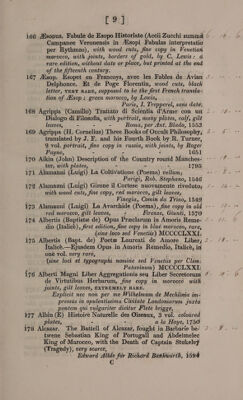 [ 9 ]
166 Æsopus. Fabule de Esopo Historiate (Accii Zucchi summa
Campanee Veronensis in Æsopi Fabulas interpretatio
per Rythmos), with wood cuts, fine copy in Venetian
morocco, with joints, borders of gold, by C. Lewis: a
rare edition, without date or place, but printed at the end
of the fifteenth century.
167 Æsop. Esopet en Francoys, avec les Fables de Avian
Delphonce, Et de Poge Florentin, wood cuts, black
letter, VERY RARE, supposed to be the first French transla-
tion of Æsop; green morocco, by Lewis,
Paris, J. Trepperel, sans date.
168 Agrippa (Camillo) Trattato di Scientia d'Arme con un
Dialogo di Filosofia, with portrait, many plates, calf, gilt
leaves, Roma, per Ant. Blado, 1553
169 Agrippa (H. Cornelius) Three Books of Occult Philosophy,
translated by J. F. and his Fourth Book by R. Turner,
2 vol. portrait, fine copy in russia, with joints, by Roger
Payne, 1651
170 Aikin (John) Description of the Country round Manches-
ter, with plates, 1795
171 Alamanni (Luigi) La Cultivatione (Poema) vellum,
Parigi, Rob. Stephano, 1546
172 Alamanni (Luigi) Girone il Cortese nuovamente riveduto,
with wood cuts, fine copy, red morocco, gilt leaves,
Vinegia, Comin da Trino, 1549
173 Alamanni (Luigi) La Avarchide (Poema), fine copy in old
red morocco, gilt leaves, Firenze, Giunti, 1570
174 Albertis (Baptiste de) Opus Præclarum in Amoris Reme-
dio (Italicè), first edition, fine copy in blue morocco, rare,
(sine loco sed Venetiis) MCCCCLXXI.
175 Albertis (Bapt. de) Poete Laureati de Amore Liber,
Italicè.—Ejusdem Opus in Amoris Remedio, Italicè, in
one vol. very rare,
(sine loci et typographi nomine sed Venetiis per Clem.
Patavinum) MCCCCLXXI.
176 Alberti Magni Liber Aggregationis seu Liber Secretorum
de Virtutibus Herbarum, fine copy in morocco with
joints, gilt leaves, EXTREMELY RARE.
Explicit nec non per me Wilhelmum de Mechlinia im-
pressus in opulentissima Civitate Londoniarum juxta
pontem qui vulgariter dicitur Flete brigge.
177 Albin (E) Histoire Naturelle des Oiseaux, 3 vol. coloured
plates, a la Haye, 1750
178 Alcazar. The Battell of Alcazar, fought in Barbarie be-
tweene Sebastian King of Portugall and Abdelmelec
King of Marocco, with the Death of Captain Stukeley
(Tragedy), very scarce,
Edward Allde for Richard Bankworth, 1594
C